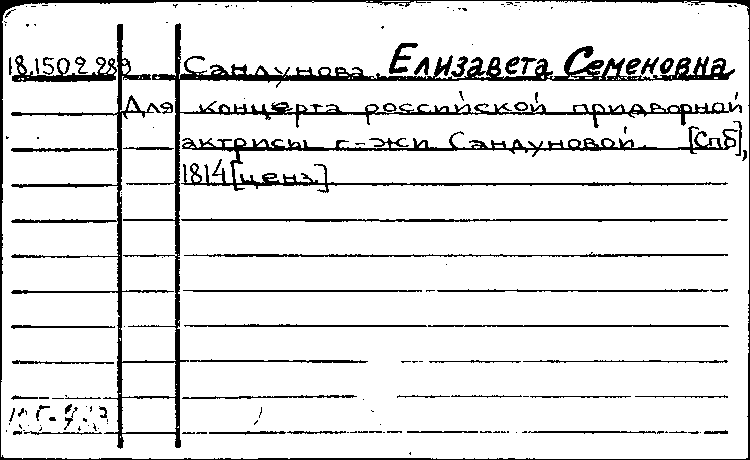 18.150.2.289 Сандунова, Елизавета Семеновна
Для концерта российской придворной
актрисы г-жи Сандуновой. [Спб],
1814 [ценз.]